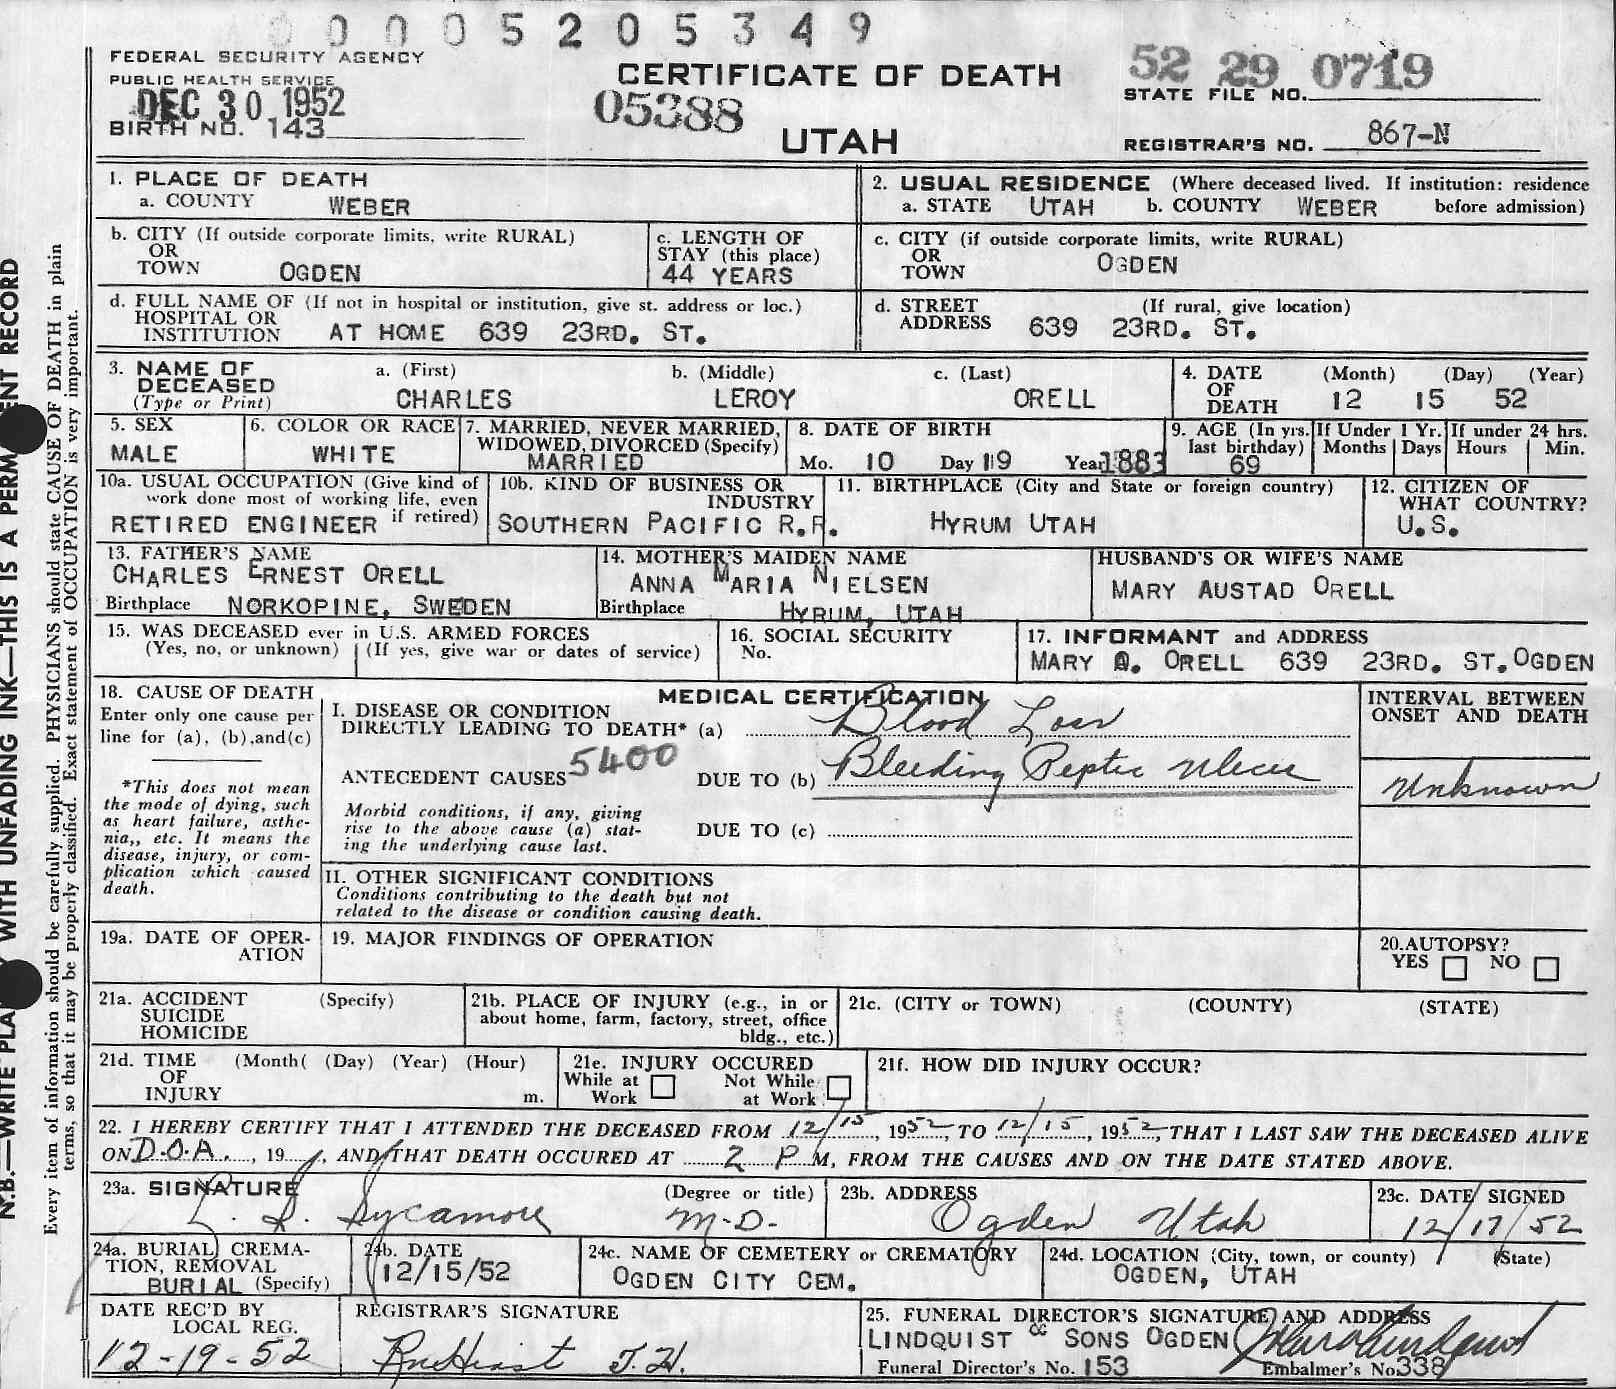 0 0 0 0 5 2 0 5 3 4 9
FEDERAL SECURITY AGENCY
PUBLIC HEALTH SERVICE
DEC 30 1952
BIRTH NO. 143
CERTIFICATE OF DEATH
05388
UTAH
52 29 0719
STATE FILE NO.
REGISTRAR'S NO. 867-N
1. PLACE OF DEATH
a. COUNTY WEBER
2. USUAL RESIDENCE (Where deceased lived. If institution: residence
a. STATE UTAH b. COUNTY WEBER before admission)
b. CITY (If outside corporate limits, write RURAL)
OR
TOWN OGDEN
c. LENGTH OF
STAY (this place)
44 YEARS
c. CITY (if outside corporate limits, write RURAL)
OR
TOWN OGDEN
d. FULL NAME OF (If not in hospital or institution, give st. address or loc.)
HOSPITAL OR
INSTITUTION AT HOME 639 23RD. ST.
d. STREET (If rural, give location)
ADDRESS 639 23RD. ST.
3. NAME OF a. (First) b. (Middle) c. (Last)
DECEASED
(Type or Print) CHARLES LEROY ORELL
4. DATE (Month) (Day) (Year)
OF
DEATH 12 15 52
5. SEX
MALE
6. COLOR OR RACE
WHITE
7. MARRIED, NEVER MARRIED,
WIDOWED, DIVORCED (Specify)
MARRIED
8. DATE OF BIRTH
Mo. 10 Day 19 Year 1883
9. AGE (In yrs.
last birthday)
69
If Under 1 Yr.
Months Days
If under 24 hrs.
Hours Min.
10a. USUAL OCCUPATION (Give kind of
work done most of working life, even
RETIRED ENGINEER if retired)
10b. KIND OF BUSINESS OR
INDUSTRY
SOUTHERN PACIFIC R.R.
11. BIRTHPLACE (City and State or foreign country)
HYRUM UTAH
12. CITIZEN OF
WHAT COUNTRY?
U.S.
13. FATHER'S NAME
CHARLES ERNEST ORELL
Birthplace NORKOPINE, SWEDEN
14. MOTHER'S MAIDEN NAME
ANNA MARIA NIELSEN
Birthplace HYRUM, UTAH
HUSBAND'S OR WIFE'S NAME
MARY AUSTAD ORELL
15. WAS DECEASED ever in U.S. ARMED FORCES
(Yes, no, or unknown) (If yes, give war or dates of service)
16. SOCIAL SECURITY
No.
17. INFORMANT and ADDRESS
MARY A. ORELL 639 23RD. ST. OGDEN
18. CAUSE OF DEATH
Enter only one cause per
line for (a), (b), and (c)
*This does not mean
the mode of dying, such
as heart failure, asthe-
nia,, etc. It means the
disease, injury, or com-
plication which caused
death.
MEDICAL CERTIFICATION
I. DISEASE OR CONDITION
DIRECTLY LEADING TO DEATH* (a) Blood Loss
5400
ANTECEDENT CAUSES DUE TO (b) Bleeding Peptic Ulcer
Morbid conditions, if any, giving
rise to the above cause (a) stat-
ing the underlying cause last.
DUE TO (c)
INTERVAL BETWEEN
ONSET AND DEATH
Unknown
II. OTHER SIGNIFICANT CONDITIONS
Conditions contributing to the death but not
related to the disease or condition causing death.
19a. DATE OF OPER-
ATION
19. MAJOR FINDINGS OF OPERATION
20. AUTOPSY?
YES NO
21a. ACCIDENT (Specify)
SUICIDE
HOMICIDE
21b. PLACE OF INJURY (e.g., in or
about home, farm, factory, street, office
bldg., etc.)
21c. (CITY or TOWN) (COUNTY) (STATE)
21d. TIME (Month( (Day) (Year) (Hour)
OF
INJURY m.
21e. INJURY OCCURED
While at Work Not While at Work
21f. HOW DID INJURY OCCUR?
22. I HEREBY CERTIFY THAT I ATTENDED THE DECEASED FROM 12/15, 1952, TO 12/15, 1952, THAT I LAST SAW THE DECEASED ALIVE
ON D.O.A., 19 , AND THAT DEATH OCCURED AT 2 P M, FROM THE CAUSES AND ON THE DATE STATED ABOVE.
23a. SIGNATURE (Degree or title)
L. S. Sycamore M.D.
23b. ADDRESS
Ogden Utah
23c. DATE SIGNED
12/17/52
24a. BURIAL, CREMA-
TION, REMOVAL
BURIAL (Specify)
24b. DATE
12/15/52
24c. NAME OF CEMETERY or CREMATORY
OGDEN CITY CEM.
24d. LOCATION (City, town, or county) (State)
OGDEN, UTAH
DATE REC'D BY
LOCAL REG.
12-19-52
REGISTRAR'S SIGNATURE
25. FUNERAL DIRECTOR'S SIGNATURE AND ADDRESS
LINDQUIST & SONS OGDEN
Funeral Director's No. 153 Embalmer's No. 338
N.B.—WRITE WITH UNFADING INK—THIS IS A RECORD
Every item of information should be carefully supplied. PHYSICIANS should state CAUSE OF DEATH in plain
terms, so that it may be properly classified. Exact statement of OCCUPATION is very important.